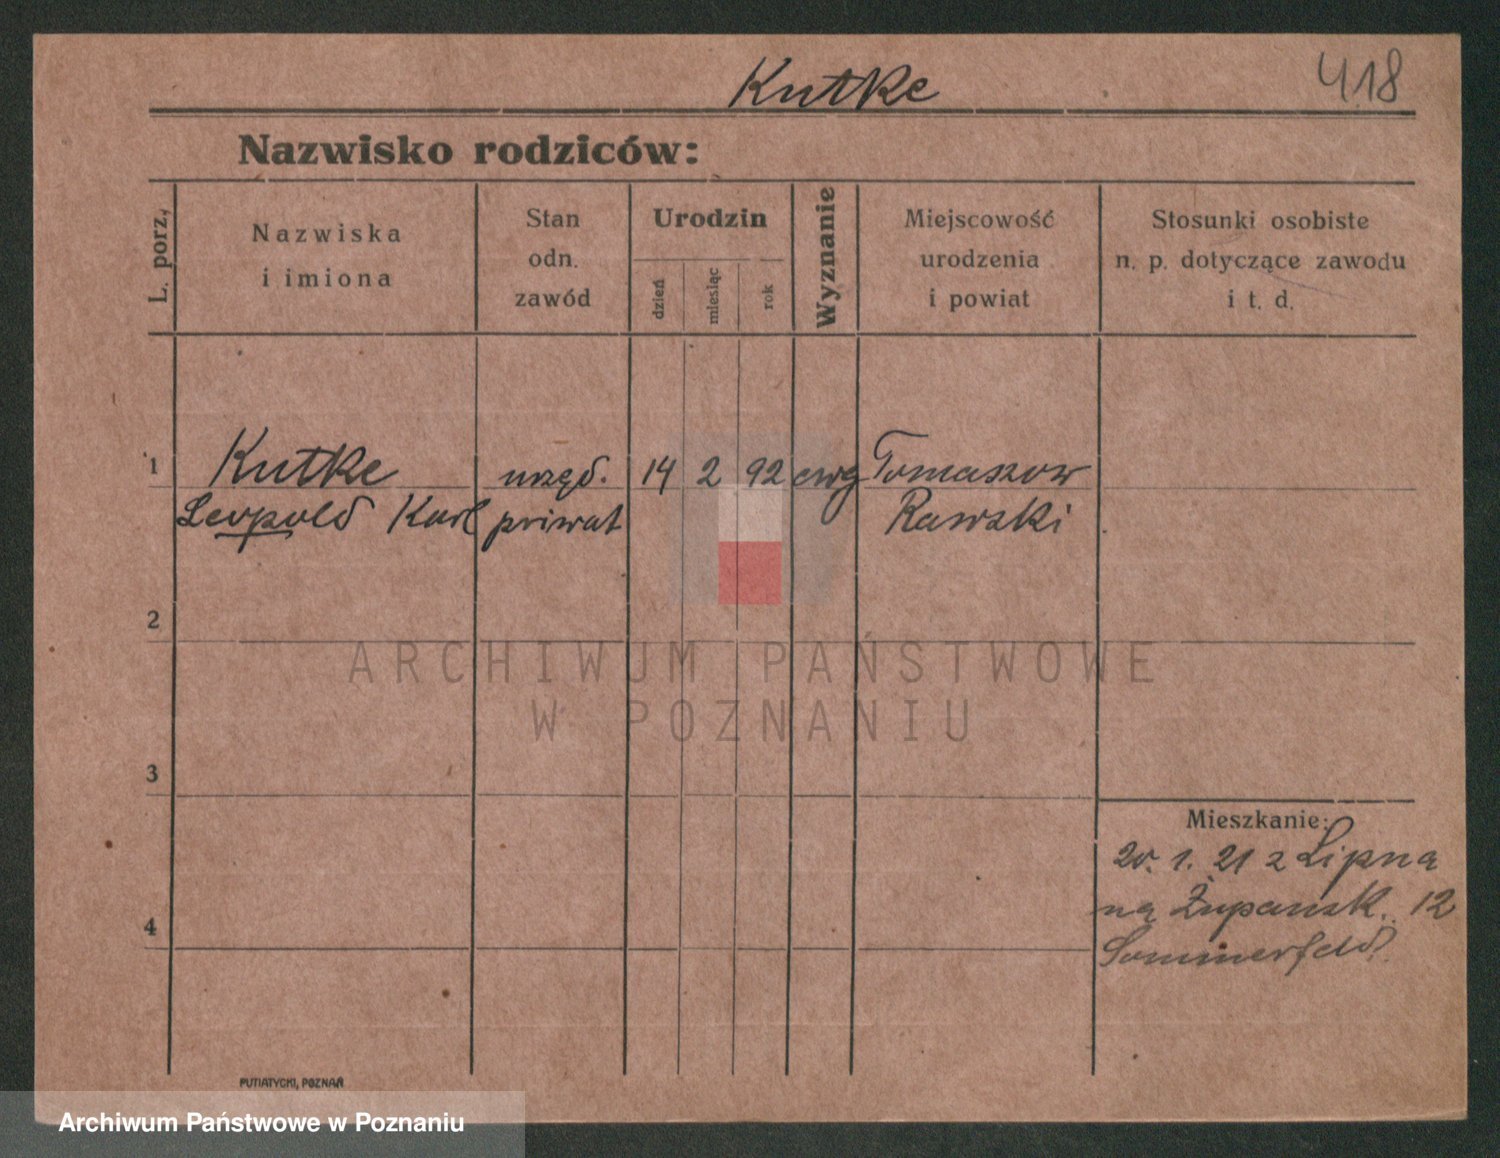 Kutke
418
Nazwisko rodziców:
L. porz.
Nazwiska
i imiona
Stan
odn.
zawód
Urodzin
dzień
miesiąc
rok
Wyznanie
Miejscowość
urodzenia
i powiat
Stosunki osobiste
n. p. dotyczące zawodu
i t. d.
1 Kutke urzęd. 14 2 92 ewg Tomaszow
Leopold Karl priwat Rawski
2
ARCHIWUM PAŃSTWOWE
W POZNANIU
3
Mieszkanie:
20. 1. 21 z Lipna
na Żupańsk. 12
4
Sommerfeld
PUTIATYCKI, POZNAŃ
Archiwum Państwowe w Poznaniu